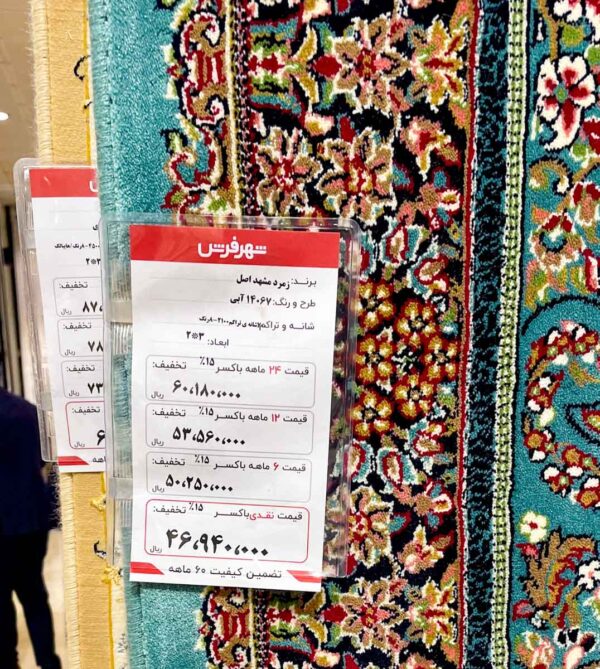 شهر فرش
برند: زمرد مشهد اصل
طرح و رنگ: ۱۴۰۶۷ آبی
شانه و تراکم:
ابعاد: ۳*۲
قیمت ۲۴ ماهه باکسر ۱۵٪ تخفیف:
۶۰،۱۸۰،۰۰۰ ریال
قیمت ۱۲ ماهه باکسر ۱۵٪ تخفیف:
۵۳،۵۶۰،۰۰۰ ریال
قیمت ۶ ماهه باکسر ۱۵٪ تخفیف:
۵۰،۲۵۰،۰۰۰ ریال
قیمت نقدی باکسر ۱۵٪ تخفیف:
۴۶،۹۴۰،۰۰۰ ریال
تضمین کیفیت ۶۰ ماهه
۳*۲
تخفیف:
۸۷، ریال
تخفیف:
۷۸ ریال
تخفیف:
۷۳ ریال
تخفیف:
۶ ریال
ماهه